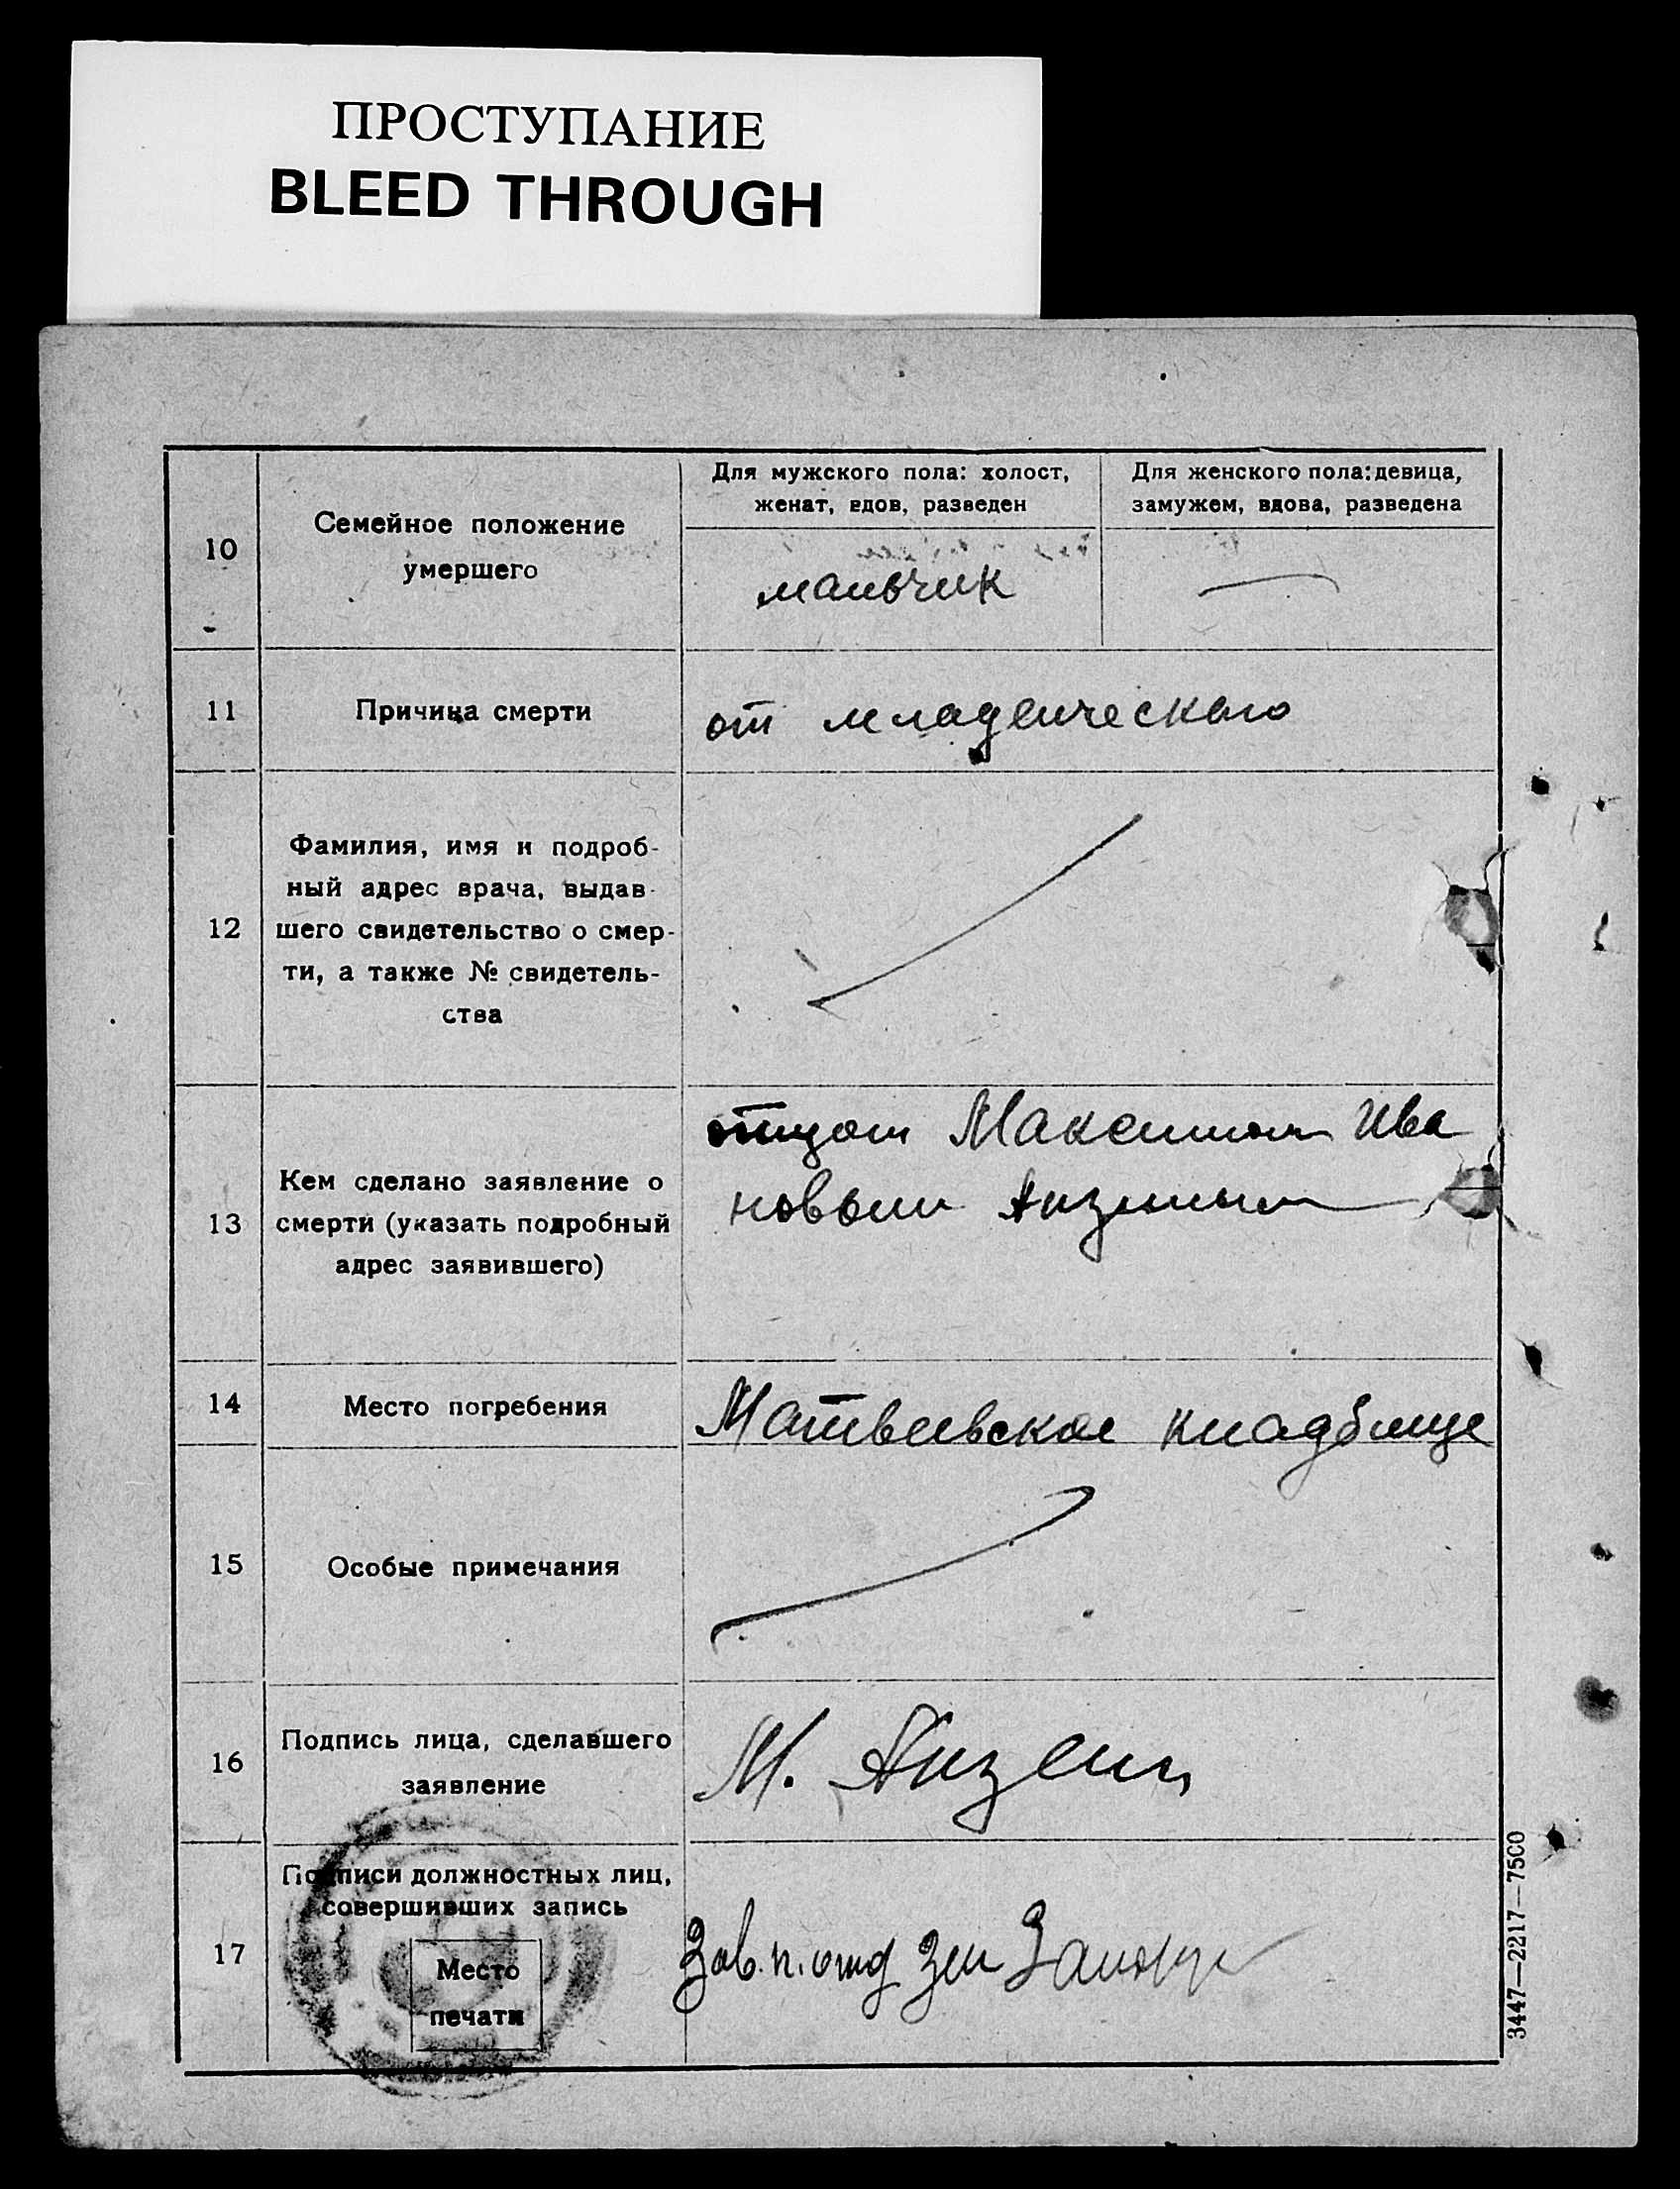 ПРОСТУПАНИЕ
BLEED THROUGH
10
Семейное положение
умершего
Для мужского пола: холост,
женат, вдов, разведен
Для женского пола: девица,
замужем, вдова, разведена
мальчик
11
Причина смерти
от младенческого
12
Фамилия, имя и подроб-
ный адрес врача, выдав-
шего свидетельство о смер-
ти, а также № свидетель-
ства
13
Кем сделано заявление о
смерти (указать подробный
адрес заявившего)
отцом Максимом Ива
новым
14
Место погребения
Матвеевское кладбище
15
Особые примечания
16
Подпись лица, сделавшего
заявление
М.
17
Подписи должностных лиц,
совершивших запись
Место
печати
Зав. п. отд
3447—2217—7500